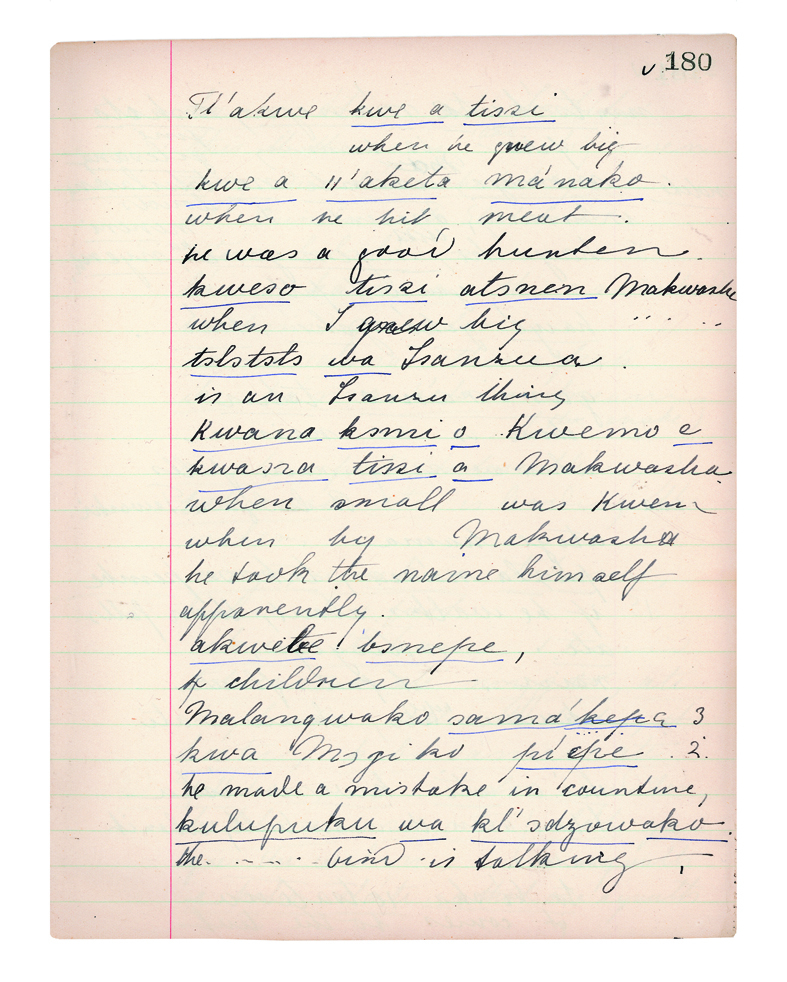 v 180
Tl'akwe kwe a tissi
when he grew big
kwe a //'aketa mánako.
when he hit meat.
he was a good hunter.
kweso tissi atsnen Makwasha
when I grew big " " "
tslstsls wa Isanzua.
is an Isanzu thing
Kwana ksmi o Kwemo e
kwasra tissi a Makwasha
when small was Kwem
when big Makwasha
he took the name himself
apparently.
akwetee bsnepe,
of children
Malangwako samá kepe 3
kwa piepie 2.
he made a mistake in counting,
kulupuku wa kl'sdzowako.
the - - - bird is talking,